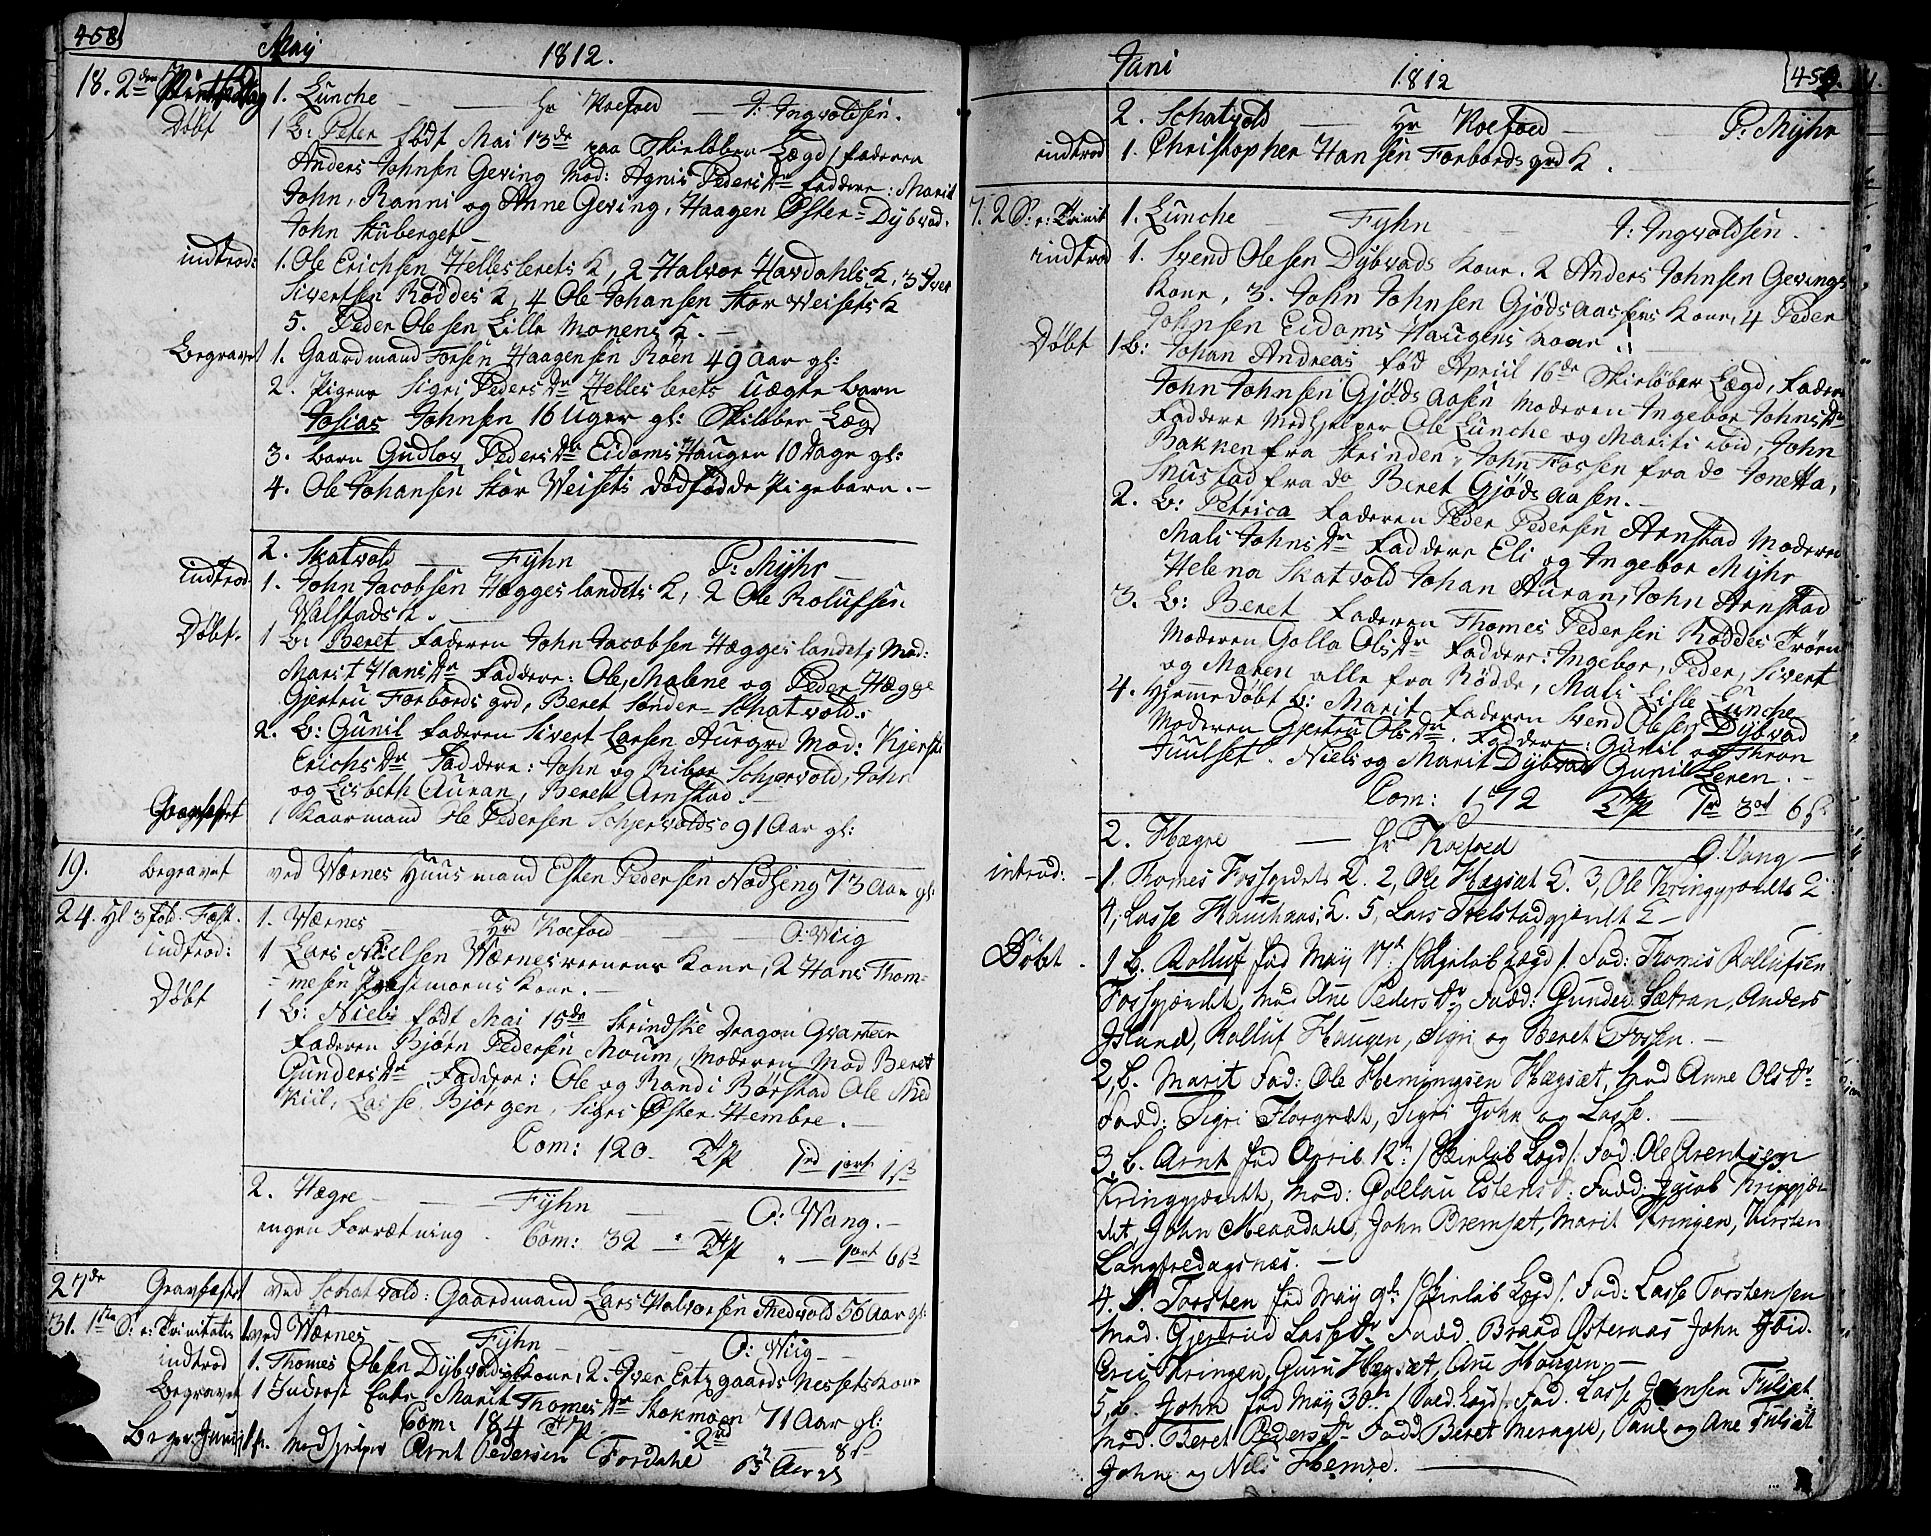 458
May 1812.
18. 2den Pintsedag 1. Lunche Hr Koefoed I: Ingvoldsen.
Døbt 1 B: Peter født Mai 13de paa Skieløber Lægd / faderen
Anders Johnsen Geving Mod: Agnis PedersDr faddere: Marit
John, Ranni og Anne Geving, Haagen Øster=Dybvad.
John Skuberget
indtrod: 1. Ole Erichsen Helleslerets K, 2 Halvor Havdahls K, 3 Iver
Sivertsen Røddes K, 4 Ole Johansen Stor Weisets K
5. Peder Olesen Lille Monens K.
Begravet 1. Gaardmand Forsen Haagensen Roen 49 Aar gl:
2. Pigens Sigri PedersDr Helleslerets Uægte Barn
Josias Johnsen 16 Uger gl: Skiløber Lægd
3. Barn Gudlov PedersDr Eidoms Haugen 10 Dage gl:
4. Ole Johansen Stor Weisets dødfødde Pigebarn.
2. Skatvold Fyhn P: Myhr
indtrod 1. John Jacobsen Hægges landets K, 2 Ole Rolufsen
Walstads K.
Døbt. 1 B: Beret Faderen John Jacobsen Hægges landet, Mod:
Marit HansDr Faddere: Ole, Malene og Peder Hægge
Gjertru Forbords grd, Beret Sønder=Schatvold.
2. B: Gunil Faderen Sivert Larsen Aurgrd Mod: Kjersti
ErichsDr Faddere: John og Ribor Schjervold, John
og Lisbeth Auran, Beret Arnstad.
Gravfæstet 1 Kaarmand Ole Pedersen Schjervolds 91 Aar gl:
19. begravet ved Wærnes Huusmand Esten Pedersen Nødseng 73 Aar gl:
24. Hl 3fold: Fæst. 1. Wærnes Hrd Koefoed O: Wiig
indtrod: 1 Lars Nielsen Wærnes Kone, 2 Hans Thom=
=mesen Præstmoens Kone.
Døbt 1 B: Niels født Mai 15de Strindske Dragon Qvarteer
Faderen Bjørn Pedersen Moum, Moderen Mod Beret
GundersDr Faddere: Ole og Randi Børstad Ole Med
Kiil, Lasse Bjørgen, Sigri Øster Hembre.
Com: 120. TAP 1rd 1ort 1ß
2. Hægre Fyhn O: Wang.
ingen Forrætning. Com: 32 TAP " 1ort 6ß
27de Gravfæstet ved Schatvold: Gaardmand Lars Halvorsen Medvold 56 Aar gl:
31. 1ste S: e: Trinitatis ved Wærnes Fyhn O: Wiig
indtrod 1. Thomes Olesen Dybvads Kone, 2. Iver Ertzgaards Nessets Kone
Begravet 1 Inderst Enke Marit ThomesDr Stokmoen 71 Aar gl:
Com: 184 TAP 2rd 8ß
Begr: Junij Medhjelper Arnt Pedersen Fordahl 63 Aar gl
Juni 1812 459.
2. Schatvold Hr Koefoed P: Myhr
indtrod 1. Christopher Hansen Forbords grd K.
7. 2 S: e: Trinit 1. Lunche Fyhn I: Ingvoldsen.
indtrod 1. Svend Olesen Dybvads Kone. 2 Anders Johnsen Gevings
Kone, 3. John Johnsen Gjødsaasens Kone, 4 Peder
Johnsen Eidoms Haugens Kone.
Døbt 1 B: Johan Andreas fød April 16de Skieløber Lægd, Fader
John Johnsen Gjødsaasen Moderen Ingebor JohnsDr
Faddere Medhjelper Ole Lunche og Marit ibid, John
Bakken fra Strinden, John Fossen fra do Jonetta,
Snustad fra do Beret Gjødsaasen.
2. B: Petrica Faderen Peder Pedersen Arnstad Moderen
Mali JohnsDr Faddere Eli og Ingebor Myhr
Helena Skatvold Johan Auran, John Arnstad
3. B: Beret Faderen Thomes Pedersen Røddes Trøen
Moderen Golla OlsDr Faddere: Ingebor, Peder, Sivert
og Maren alle fra Rødde, Mali Lille Lunche
4. Hjemmedøbt B: Marit Faderen Svend Olesen Dybvad
Moderen Gjertru OlsDr. Faddere: Gunil og Thron
Juulset. Niels og Marit Dybvad Gunil Leren.
Com: 172 TAP 1rd 3ort 6ß
2. Hægre Hr Koefoed O. Vang
introd: 1. Thomes Fossgrdets K. 2, Ole Hægsæt K. 3, Ole Kringgjærdts K
4, Lasse K. 5, Lars gjerdt K
Døbt 1 B. Rolluf fød May 17d /Skieløb Lægd/. Fad: Thomes Rollufsen
Fossgjærdt, Mod Ane PedersDr Fadd: Gunder Sætran, Anders
Island, Rolluf Haugen, Sigri og Beret Fossen.
2, B. Marit Fad: Ole Hemingsen Hægsæt, Mod Anne OlsDr
Fadd: Sigri Florgrdt, Sigri John og Lasse.
3, B. Arnt fød April 12t /Skieløb Lægd/. Fad: Ole Arentsen
Kringgjærdt, Mod: Gollau EstensD: Fadd: Jacob Kringgjær
det, John Meradahl, John Bremsæt, Marit Kringen, Kirsten
Langfredagsnæs.
4. B. Torsten fød May 9t: /Skieløb Lægd/. Fad: Lasse Torstensen
Mod. Gjertrud LasseDr Fadd. Brand Østeraas John Ibid.
Eric Kringen, Guru Hægsæt, Ane Haugen.
5, B. John fød May 30t /Sold. Lægd/. Fad. Lasse Johnsen Fulsæt.
Mod. Beret PedersDr Fadd Beret Meragee, Paul og Ane Fulsæt
John og Nils Hembre.